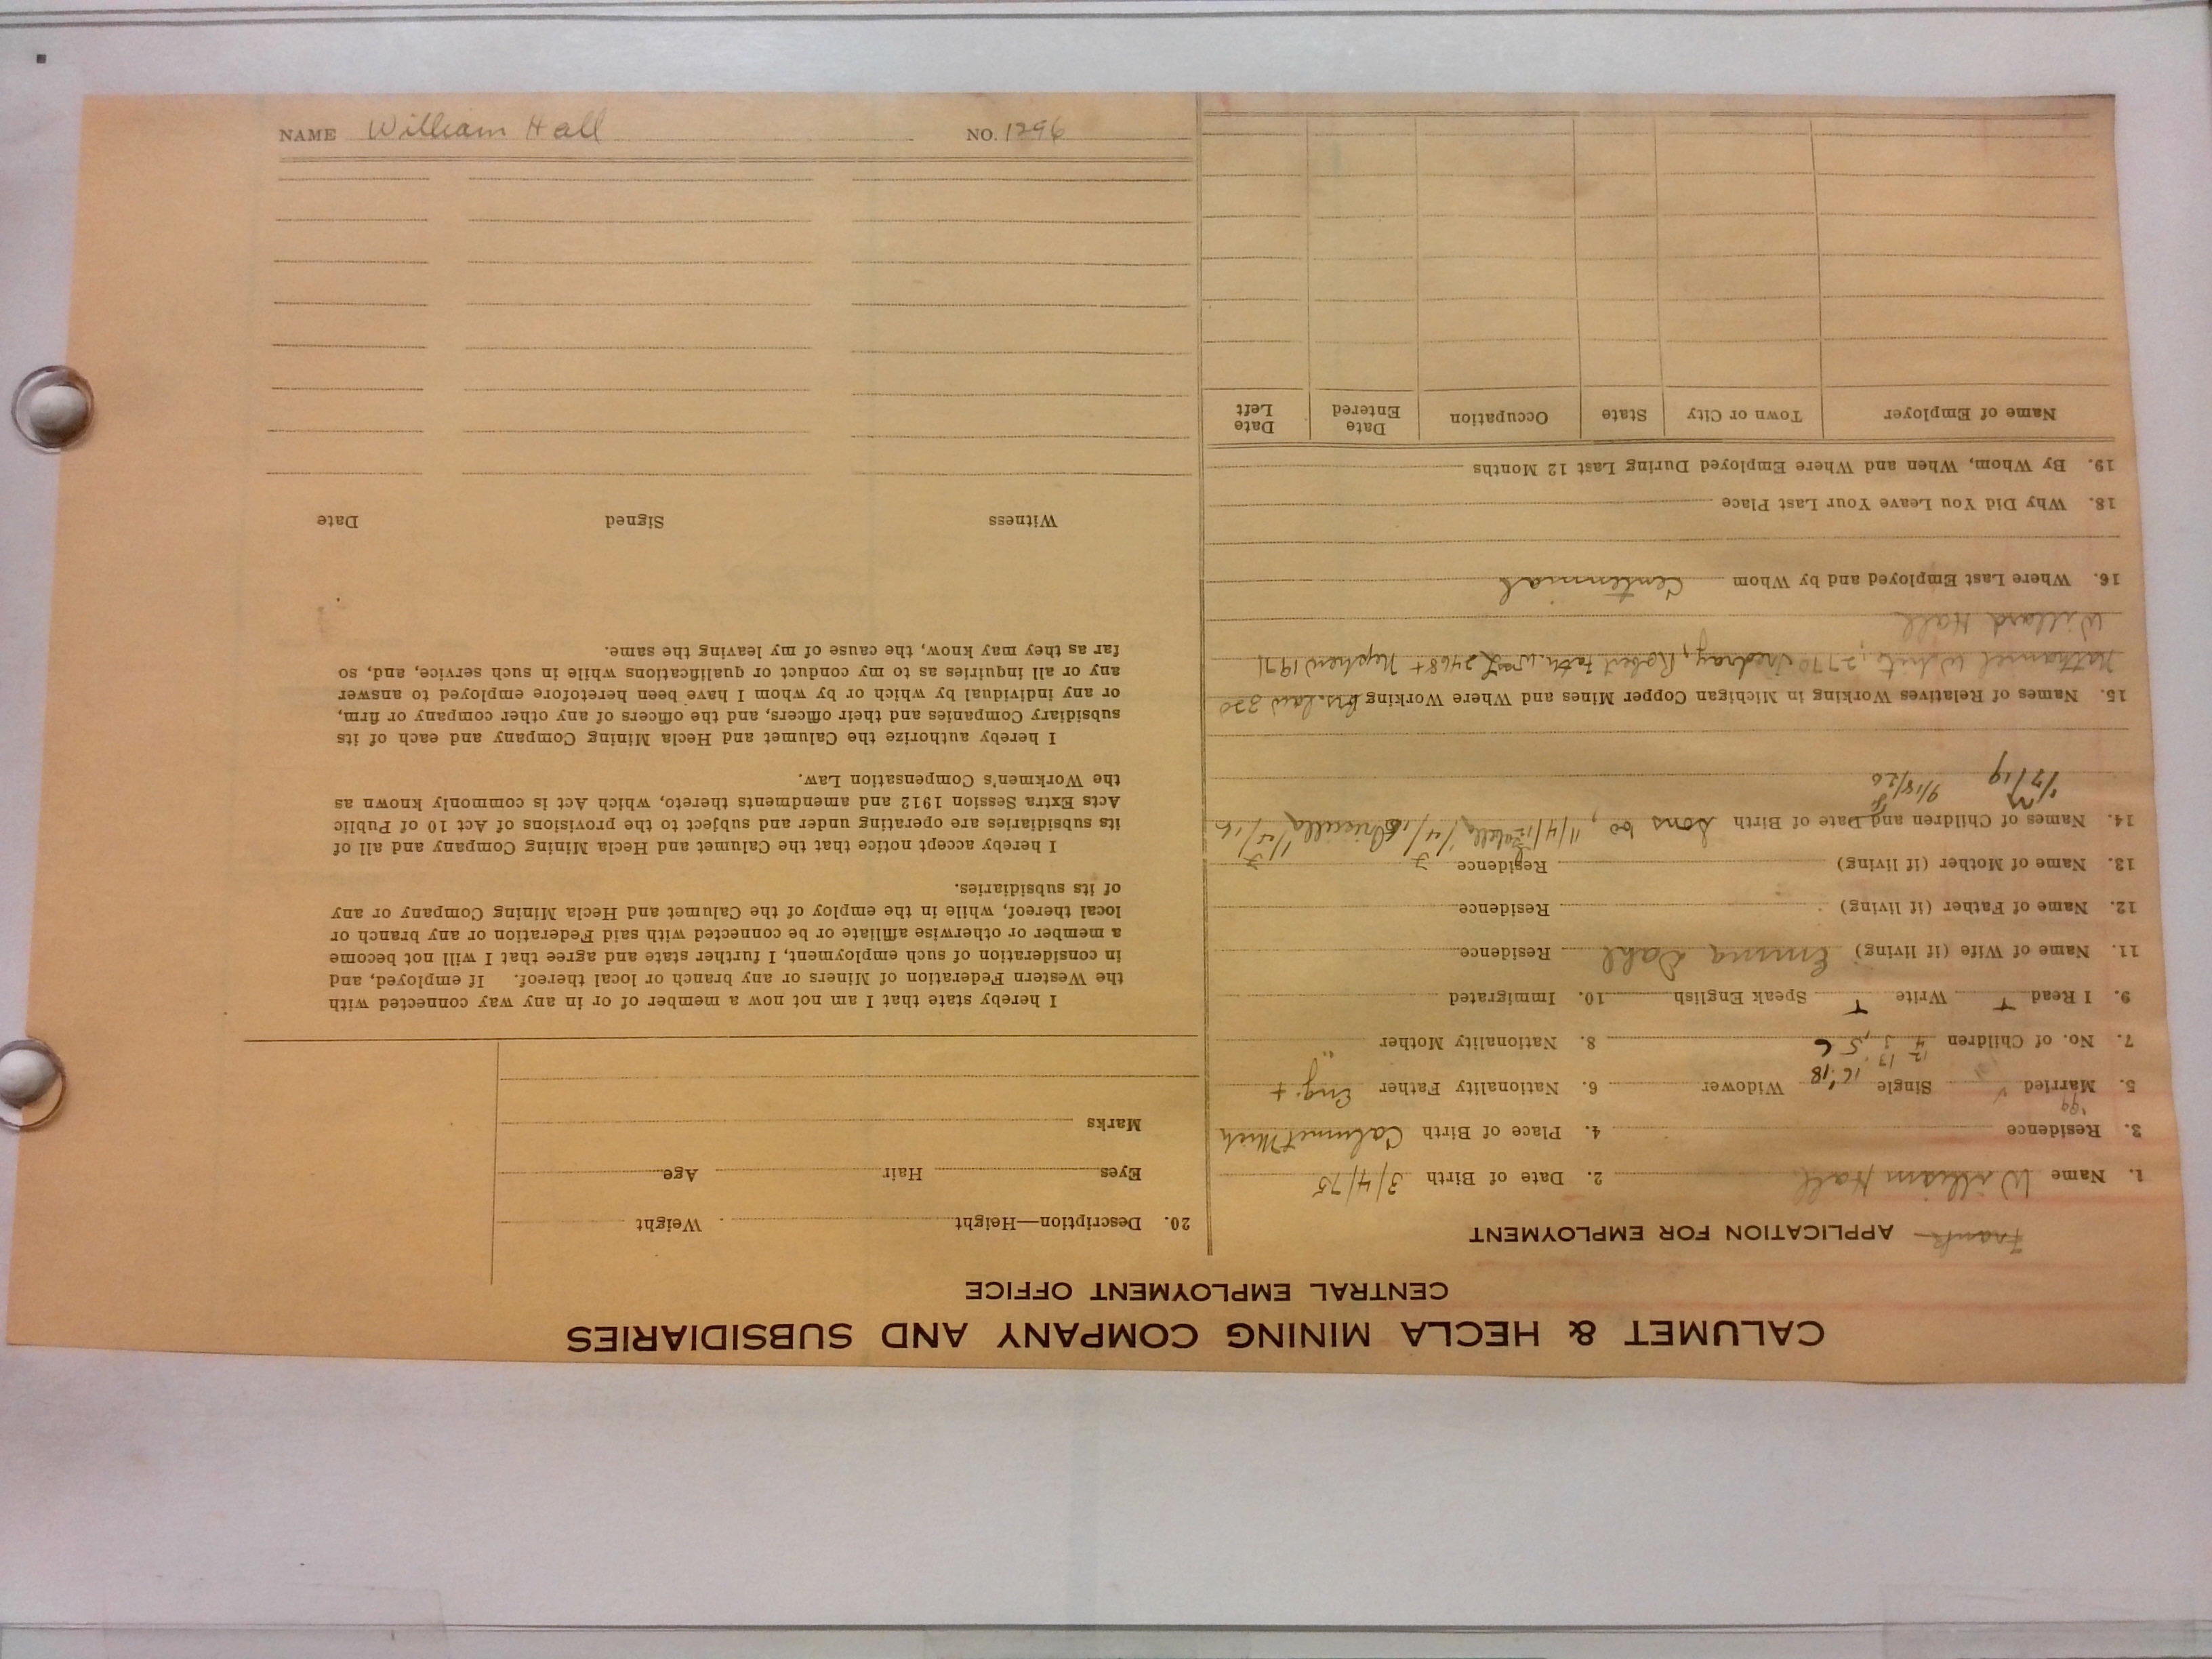 CALUMET & HECLA MINING COMPANY AND SUBSIDIARIES
CENTRAL EMPLOYMENT OFFICE
APPLICATION FOR EMPLOYMENT
1. Name William Hall 2. Date of Birth 3/4/75
3. Residence 4. Place of Birth Calumet Mich
'99
5. Married Single 16 '18 Widower 6. Nationality Father Eng. +
7. No. of Children 4 3, 5 6 8. Nationality Mother "
9. I Read Write Speak English 10. Immigrated
11. Name of Wife (if living) Emma Dahl Residence
12. Name of Father (if living) Residence
13. Name of Mother (if living) Residence
14. Names of Children and Date of Birth Sons
1/7/19 9/18/20
15. Names of Relatives Working in Michigan Copper Mines and Where Working Bro. Law 320
Nathaniel White, 2770 Robert 2468 + Nephew 1971
Willard Hall
16. Where Last Employed and by Whom Centennial
18. Why Did You Leave Your Last Place
19. By Whom, When and Where Employed During Last 12 Months
Name of Employer Town or City State Occupation Date Entered Date Left
20. Description—Height Weight
Eyes Hair Age
Marks
I hereby state that I am not now a member of or in any way connected with
the Western Federation of Miners or any branch or local thereof. If employed, and
in consideration of such employment, I further state and agree that I will not become
a member or otherwise affiliate or be connected with said Federation or any branch or
local thereof, while in the employ of the Calumet and Hecla Mining Company or any
of its subsidiaries.
I hereby accept notice that the Calumet and Hecla Mining Company and all of
its subsidiaries are operating under and subject to the provisions of Act 10 of Public
Acts Extra Session 1912 and amendments thereto, which Act is commonly known as
the Workmen's Compensation Law.
I hereby authorize the Calumet and Hecla Mining Company and each of its
subsidiary Companies and their officers, and the officers of any other company or firm,
or any individual by which or by whom I have been heretofore employed to answer
any or all inquiries as to my conduct or qualifications while in such service, and, so
far as they may know, the cause of my leaving the same.
Witness Signed Date
NAME William Hall NO. 1296